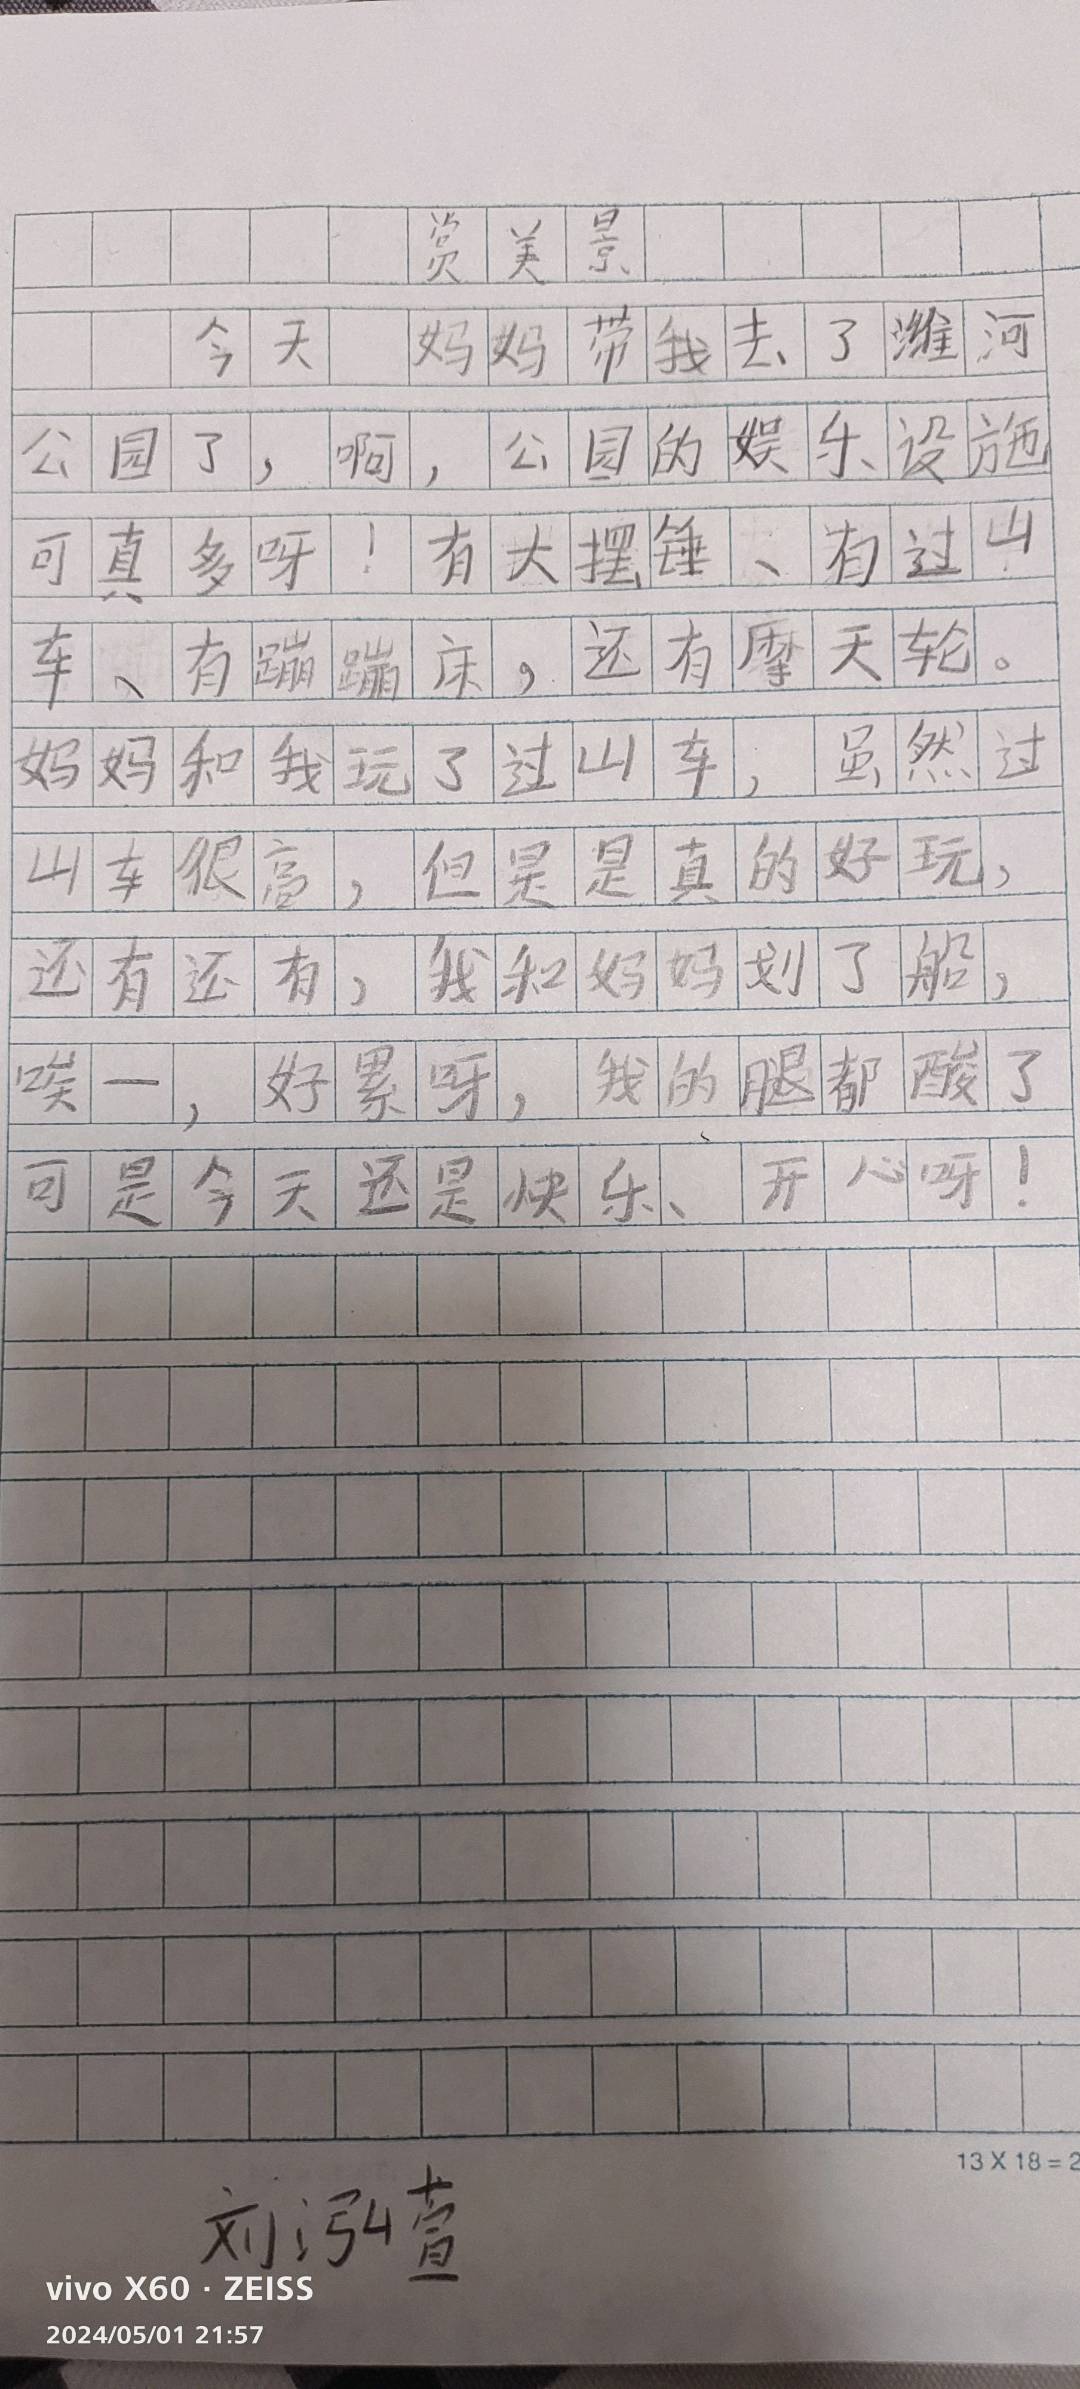 赏美景
今天 妈妈带我去了潍河
公园了，啊，公园的娱乐设施
可真多呀！有大摆锤、有过山
车、有蹦蹦床，还有摩天轮。
妈妈和我玩了过山车，虽然过
山车很高，但是是真的好玩，
还有还有，我和妈妈划了船，
唉一，好累呀，我的腿都酸了
可是今天还是快乐、开心呀！
13 X 18 = 2
刘泓萱
vivo X60 · ZEISS
2024/05/01 21:57